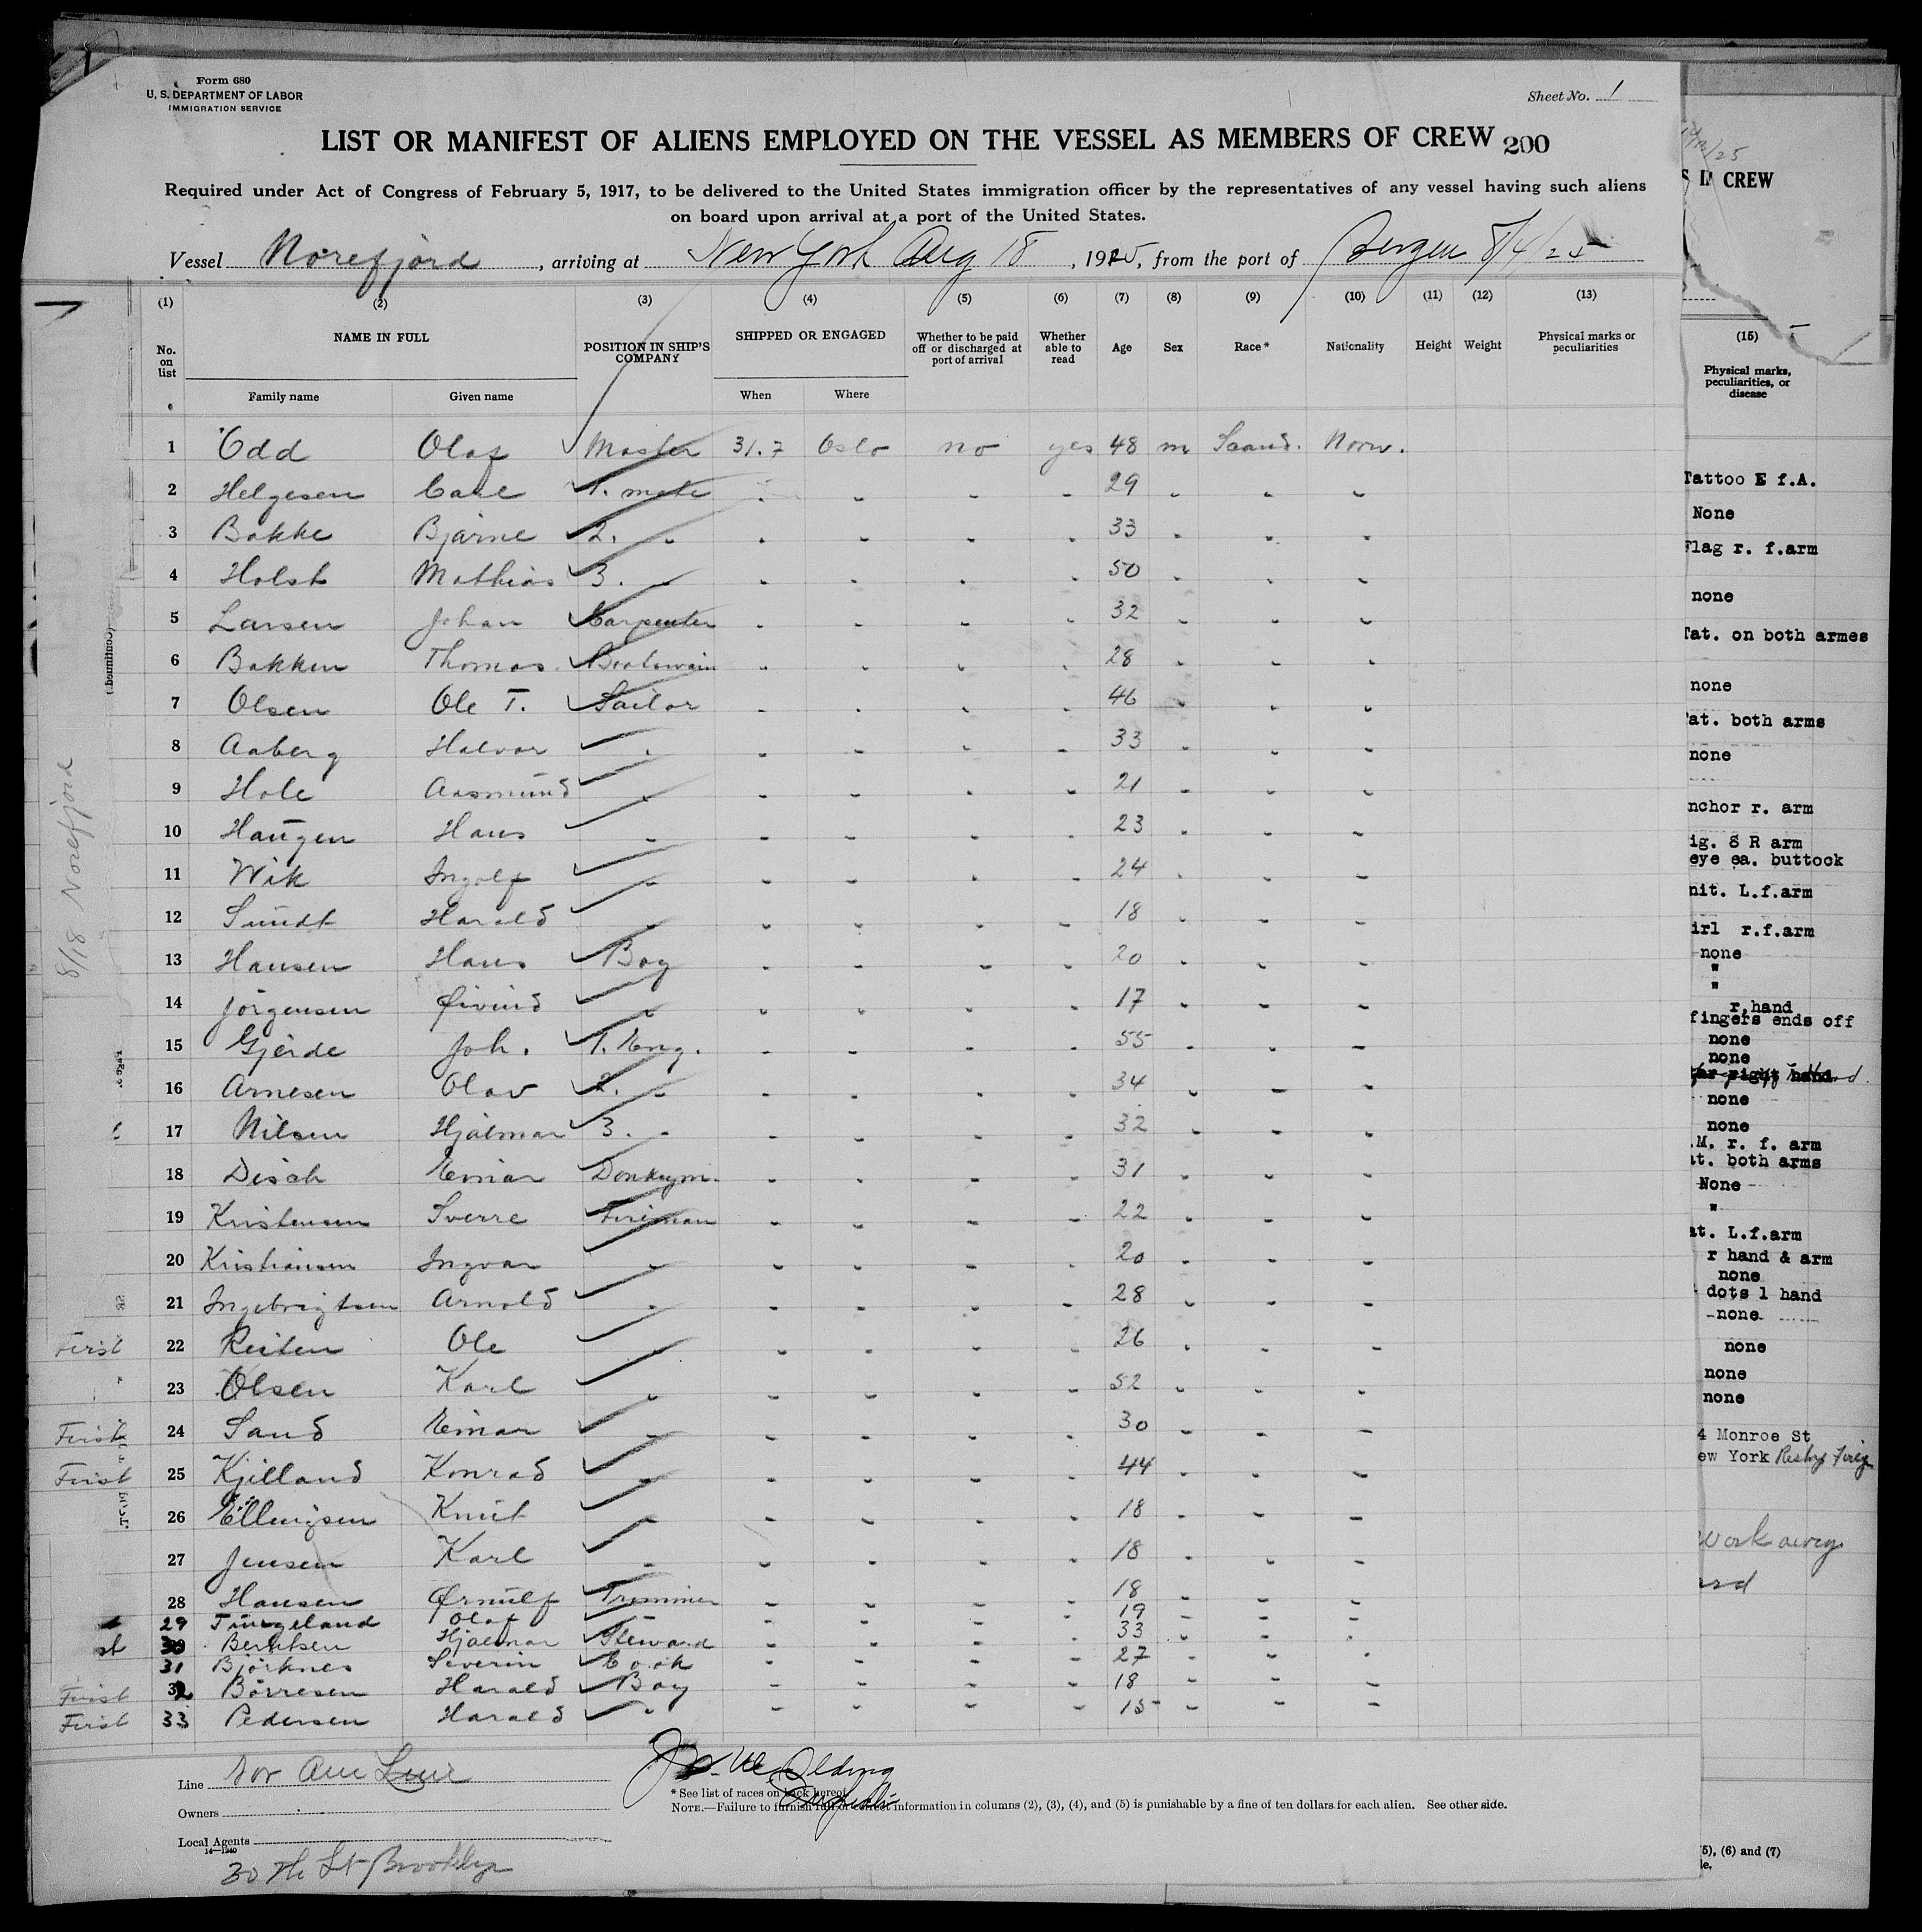 Form 680
U. S. DEPARTMENT OF LABOR
IMMIGRATION SERVICE
Sheet No. 1
LIST OR MANIFEST OF ALIENS EMPLOYED ON THE VESSEL AS MEMBERS OF CREW 200
Required under Act of Congress of February 5, 1917, to be delivered to the United States immigration officer by the representatives of any vessel having such aliens
on board upon arrival at a port of the United States.
Vessel Norefjord, arriving at New York Aug 18, 1925, from the port of Bergen 8/4/25
(1) (2) (3) (4) (5) (6) (7) (8) (9) (10) (11) (12) (13)
No. on list NAME IN FULL POSITION IN SHIP'S COMPANY SHIPPED OR ENGAGED Whether to be paid off or discharged at port of arrival Whether able to read Age Sex Race* Nationality Height Weight Physical marks or peculiarities
Family name Given name When Where
1 Odd Olaf Master 31.7 Oslo no yes 48 m Scand. Norw.
2 Helgesen Carl 1. mate " " " " 29 " " "
3 Bakke Bjarne 2. " " " " " 33 " " "
4 Holst Mathias 3. " " " " " 50 " " "
5 Larsen Johan Carpenter " " " " 32 " " "
6 Bakken Thomas Boatswain " " " " 28 " " "
7 Olsen Ole T. Sailor " " " " 46 " " "
8 Aaberg Halvor " " " " " 33 " " "
9 Hole Aasmund " " " " " 21 " " "
10 Haugen Hans " " " " " 23 " " "
11 Wik Ingolf " " " " " 24 " " "
12 Sundt Harald " " " " " 18 " " "
13 Hansen Hans Boy " " " " 20 " " "
14 Jörgensen Øivind " " " " " 17 " " "
15 Gjerde Joh. 1. Eng. " " " " 55 " " "
16 Arnesen Olav 2. " " " " " 34 " " "
17 Nilsen Hjalmar 3. " " " " " 32 " " "
18 Disch Einar Donkeym. " " " " 31 " " "
19 Kristensen Sverre Fireman " " " " 22 " " "
20 Kristiansen Ingvar " " " " " 20 " " "
21 Ingebrigtsen Arnold " " " " " 28 " " "
First 22 Reiten Ole " " " " " 26 " " "
23 Olsen Karl " " " " " 52 " " "
First 24 Sand Einar " " " " " 30 " " "
First 25 Kjilland Konrad " " " " " 44 " " "
26 Ellingsen Knut " " " " " 18 " " "
27 Jensen Karl " " " " " 18 " " "
28 Hansen Ørnulf Trimmer " " " " 18 " " "
29 Tungeland Olaf " " " " " 19 " " "
st 30 Berntsen Hjalmar Steward " " " " 33 " " "
31 Björknes Severin Cook " " " " 27 " " "
First 32 Börresen Harald Boy " " " " 18 " " "
First 33 Pedersen Harald " " " " " 15 " " "
Line Nor Am Line
Owners
Local Agents
14—1240
30 th St Brooklyn
* See list of races on back hereof.
NOTE.—Failure to furnish full or correct information in columns (2), (3), (4), and (5) is punishable by a fine of ten dollars for each alien. See other side.
8/18 Norefjord
(continued)
CREW
(15)
Physical marks,
peculiarities, or
disease
Tattoo E f.A.
None
Flag r. f.arm
none
Tat. on both armes
none
at. both arms
none
nchor r. arm
ig. S R arm
eye ea. buttock
nit. L.f.arm
irl r.f.arm
none
"
"
r.hand
fingers ends off
none
none
right hand
none
none
.M. r. f. arm
at. both arms
None
"
at. L.f.arm
r hand & arm
none
dots l hand
none
none
none
none
4 Monroe St
ew York
work away
5), (6) and (7)
le.